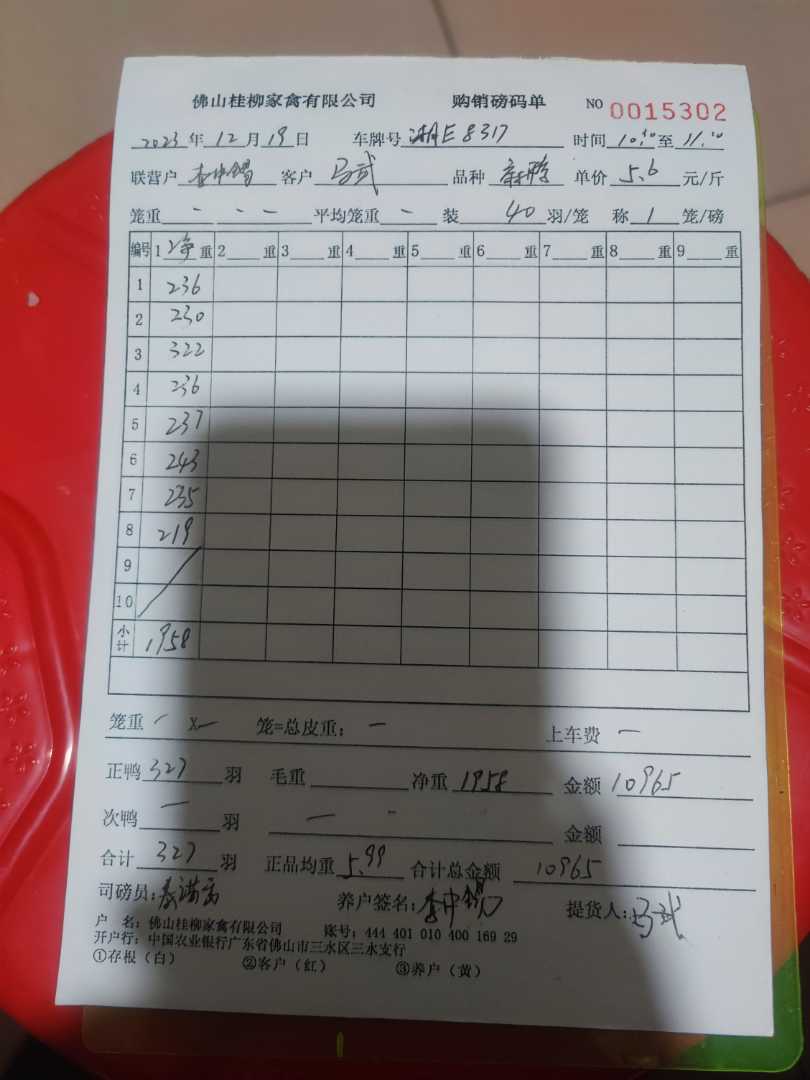 佛山桂柳家禽有限公司 购销磅码单 NO 0015302
2023年12月19日 车牌号 湘E8317 时间 10:40至11:10
联营户 李中锡 客户 马武 品种 单价 5.6 元/斤
笼重 - - - 平均笼重 - 装 40 羽/笼 称 1 笼/磅
编号 1 净 重 2 重 3 重 4 重 5 重 6 重 7 重 8 重 9 重
1 236
2 230
3 322
4 236
5 237
6 243
7 235
8 219
9
10
小计 1958
笼重 - x - 笼=总皮重: - 上车费 -
正鸭 327 羽 毛重 净重 1958 金额 10965
次鸭 - 羽 - - 金额
合计 327 羽 正品均重 5.99 合计总金额 10965
司磅员: 养户签名: 李中锡 提货人: 马武
户 名: 佛山桂柳家禽有限公司 账号: 444 401 010 400 169 29
开户行: 中国农业银行广东省佛山市三水区三水支行
①存根(白) ②客户(红) ③养户(黄)